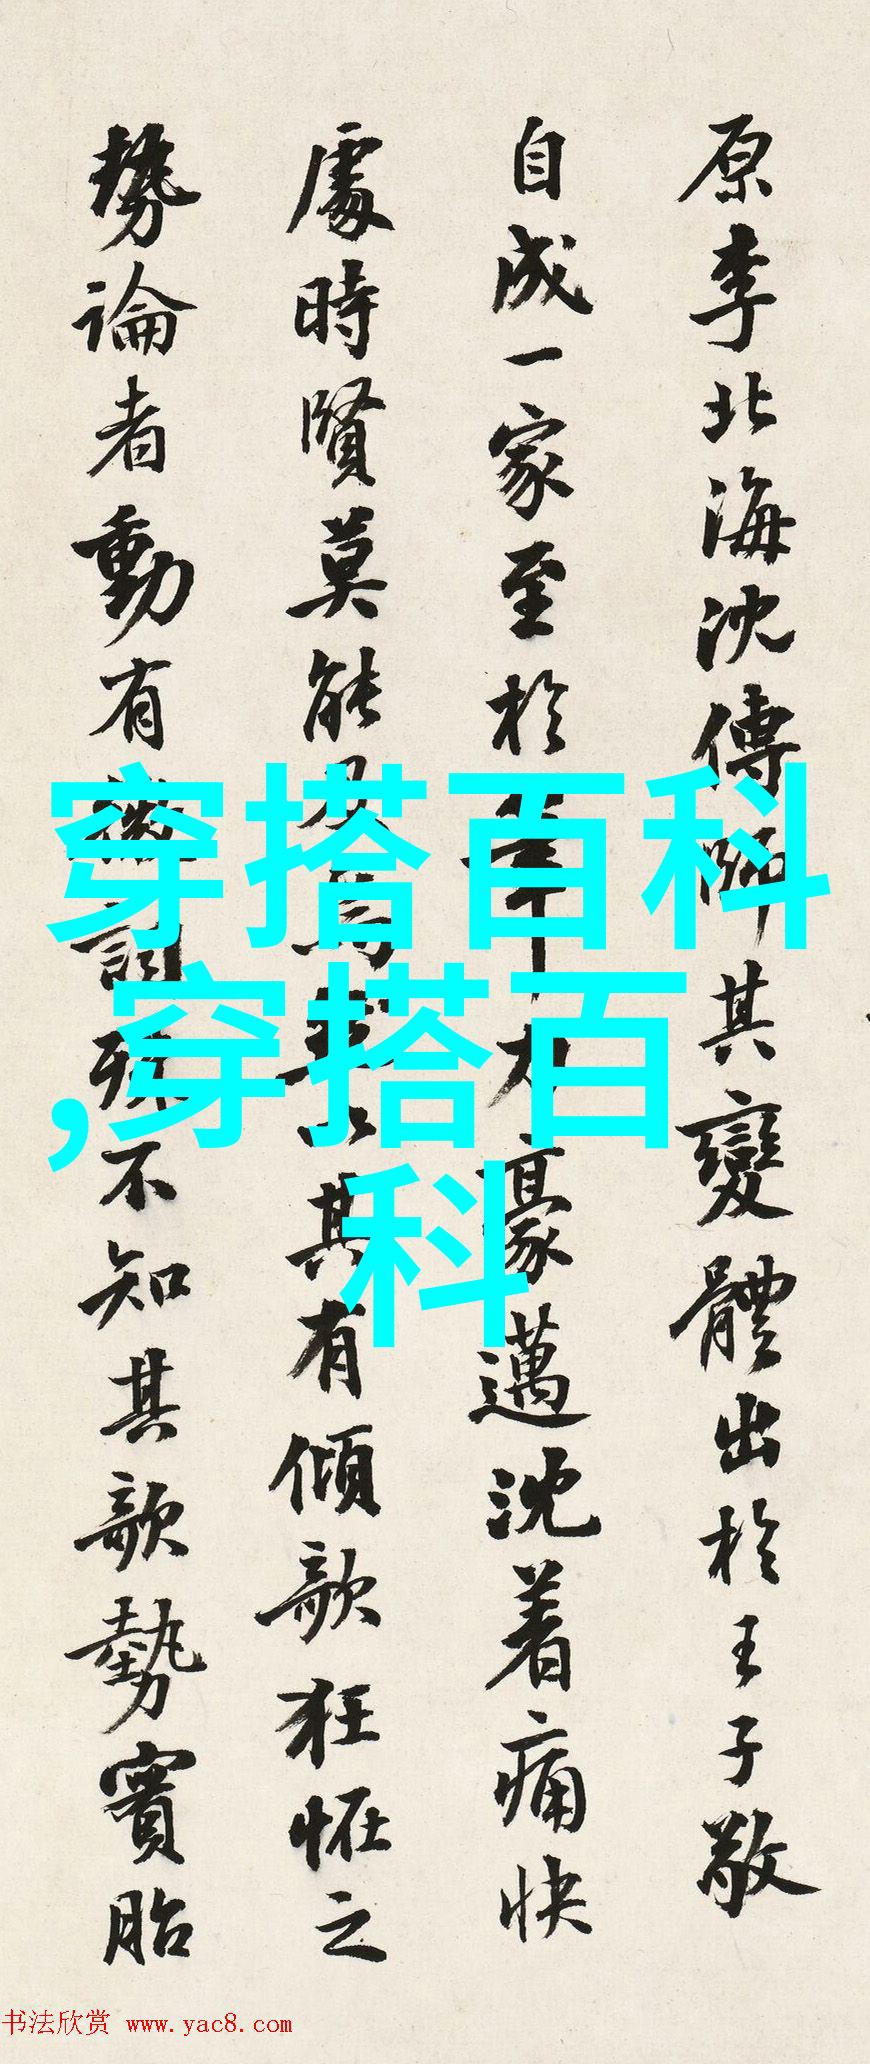 原李北海沈傳師其變體出於王子敬
自成一家至於年大豪邁沈着痛快
處時賢莫能及其有傾欹狂怪之
勢論者動有不知其欹勢實胎
穿搭百科
,穿搭百
科
书法欣赏 www.yac8.com